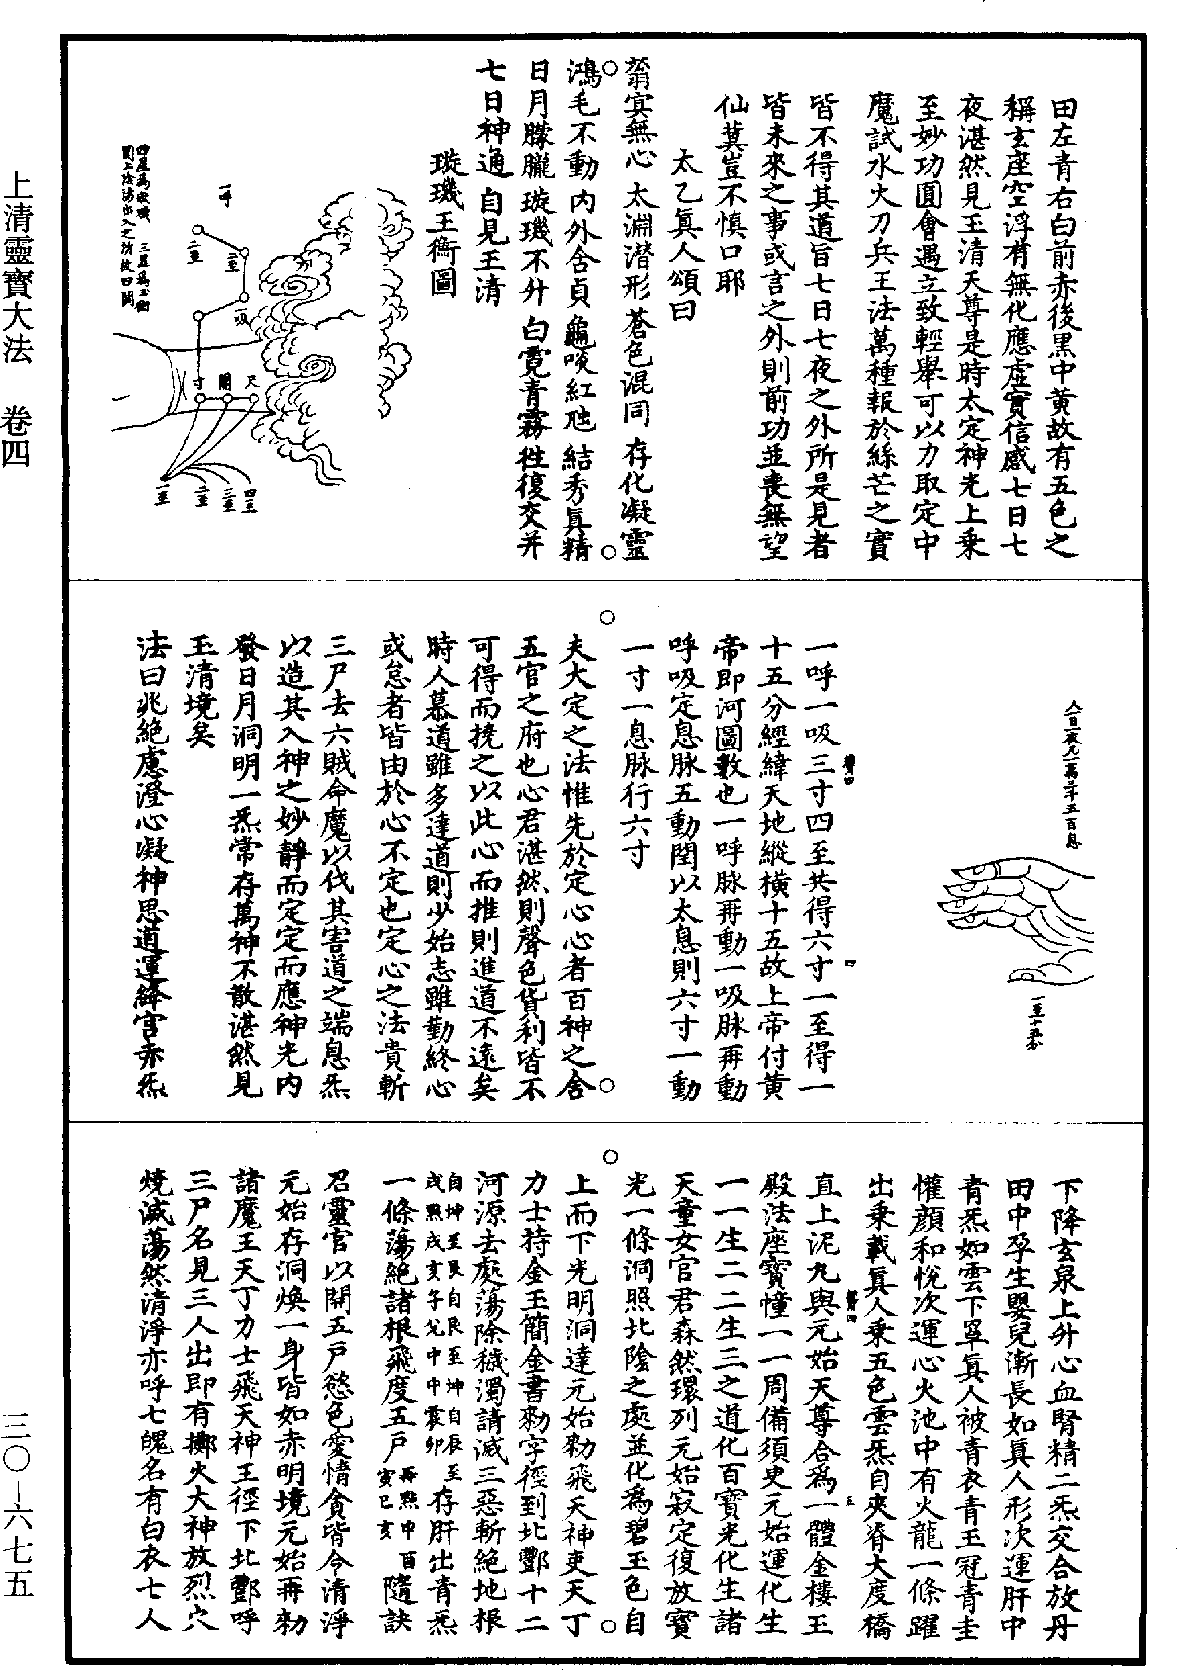 上清靈寶大法　卷四
田左青右白前赤後黑中黃故有五色之
稱玄座空浮有無化應虛實信感七日七
夜湛然見玉清天尊是時太定神光上乘
至妙功圓會遇立致輕舉可以力取定中
魔試水火刀兵王法萬種報於絲芒之實
皆不得其道旨七日七夜之外所是見者
皆未來之事或言之外則前功並喪無望
仙冀豈不慎口耶
太乙眞人頌曰
翁㝠無心　太淵潛形　蒼色混同　存化凝靈
鴻毛不動　內外含貞　龜啖紅虺　結秀眞精
日月朦朧　璇璣不分　白霓青霧　徃復交并
七日神通　自見玉清
璇璣玉衡圖
一呼
二至
一至
一吸
寸
關
尺
一至
二至
三至
四至
人一日一夜凡一萬三千五百息
一至十五分
一呼一吸三寸四至共得六寸一至得一
十五分經緯天地縱橫十五故上帝付黃
帝即河圖數也一呼脉再動一吸脉再動
呼吸定息脉五動閏以太息則六寸一動
一寸一息脉行六寸
夫大定之法惟先於定心心者百神之舍
五官之府也心君湛然則聲色貨利皆不
可得而撓之以此心而推則進道不遠矣
時人慕道雖多達道則少始志雖勤終心
或怠者皆由於心不定也定心之法貴斬
三尸去六賊命魔以伐其害道之端息炁
以造其入神之妙靜而定定而應神光內
發日月洞明一炁常存萬神不散湛然見
玉清境矣
法曰兆絕慮澄心凝神思道運絳宮赤炁
下降玄泉上升心血腎精二炁交合放丹
田中孕生嬰兒漸長如眞人形次運肝中
青炁如雲下罩眞人被青衣青玉冠青圭
懽顏和悅次運心火池中有火龍一條躍
出乘載眞人乘五色雲炁自夾脊大度橋
直上泥丸與元始天尊合爲一體金樓玉
殿法座寶幢一一周備須臾元始運化生
一一生二二生三之道化百寶光化生諸
天童女官君森然環列元始寂定復放寶
光一條洞照北陰之處並化為碧玉色自
上而下光明洞達元始勑飛天神吏天丁
力士持金玉簡金書勑字徑到北酆十二
河源去處蕩除穢濁請滅三惡斬絕地根
自坤至艮自艮至坤自辰至
戌點戌亥午戈中申震卯
存肝出青炁
一條蕩絕諸根飛度五戶
再點中
寅巳亥
百隨訣
召靈官以開五戶慾色愛情貪皆令清淨
元始存洞煥一身皆如赤明境元始再勑
諸魔王天丁力士飛天神王徑下北酆呼
三尸名見三人出即有擲火大神放烈穴
燒滅蕩然清淨亦呼七魄名有白衣七人
三〇－六七五